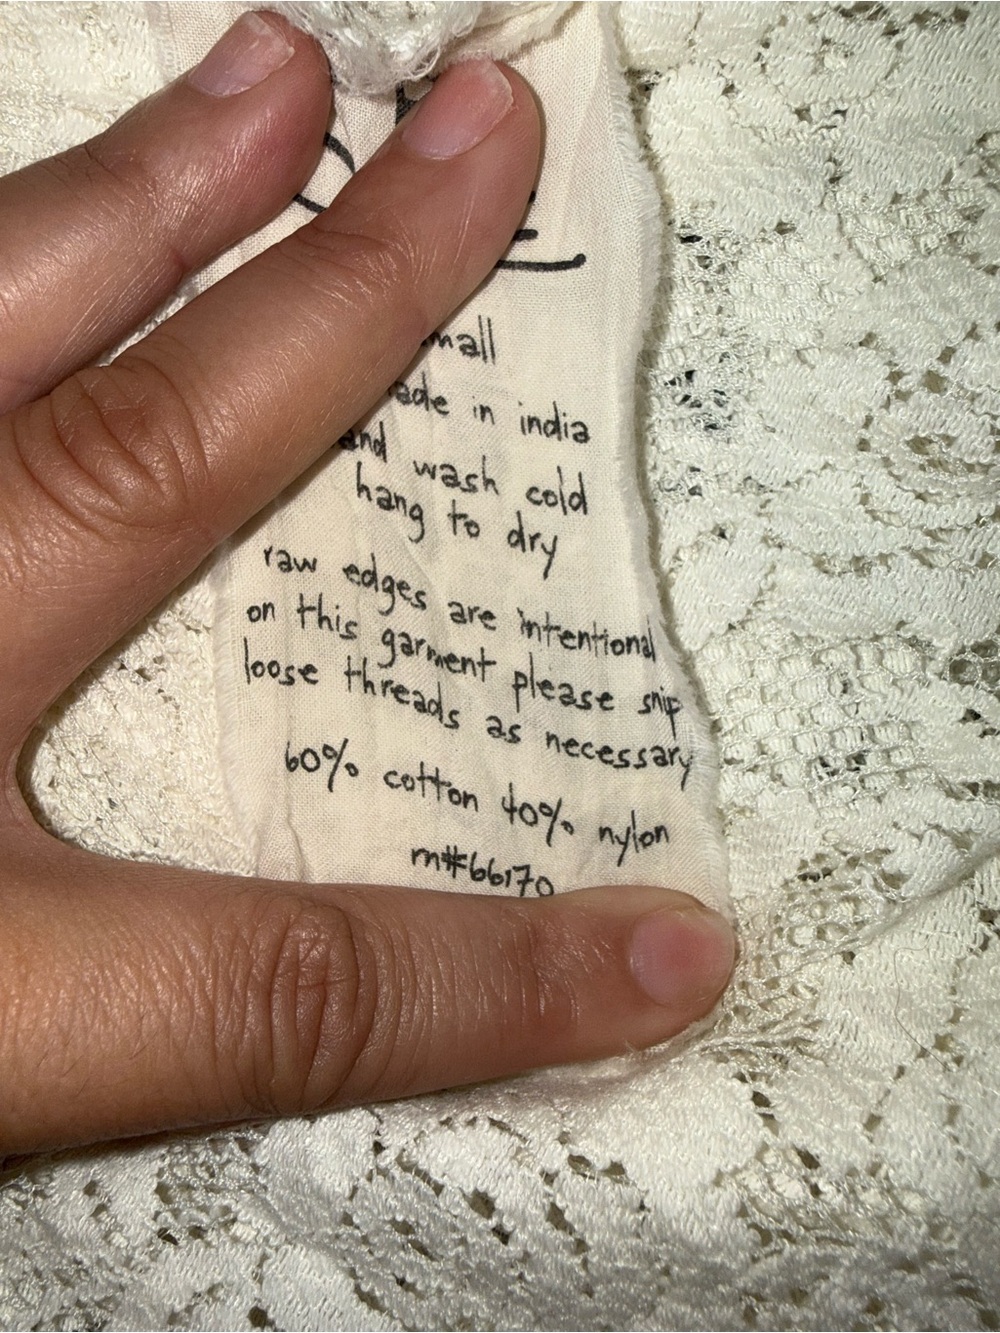 mall
ade in india
and wash cold
hang to dry
raw edges are intentional
on this garment please snip
loose threads as necessary
60% cotton 40% nylon
m#66170